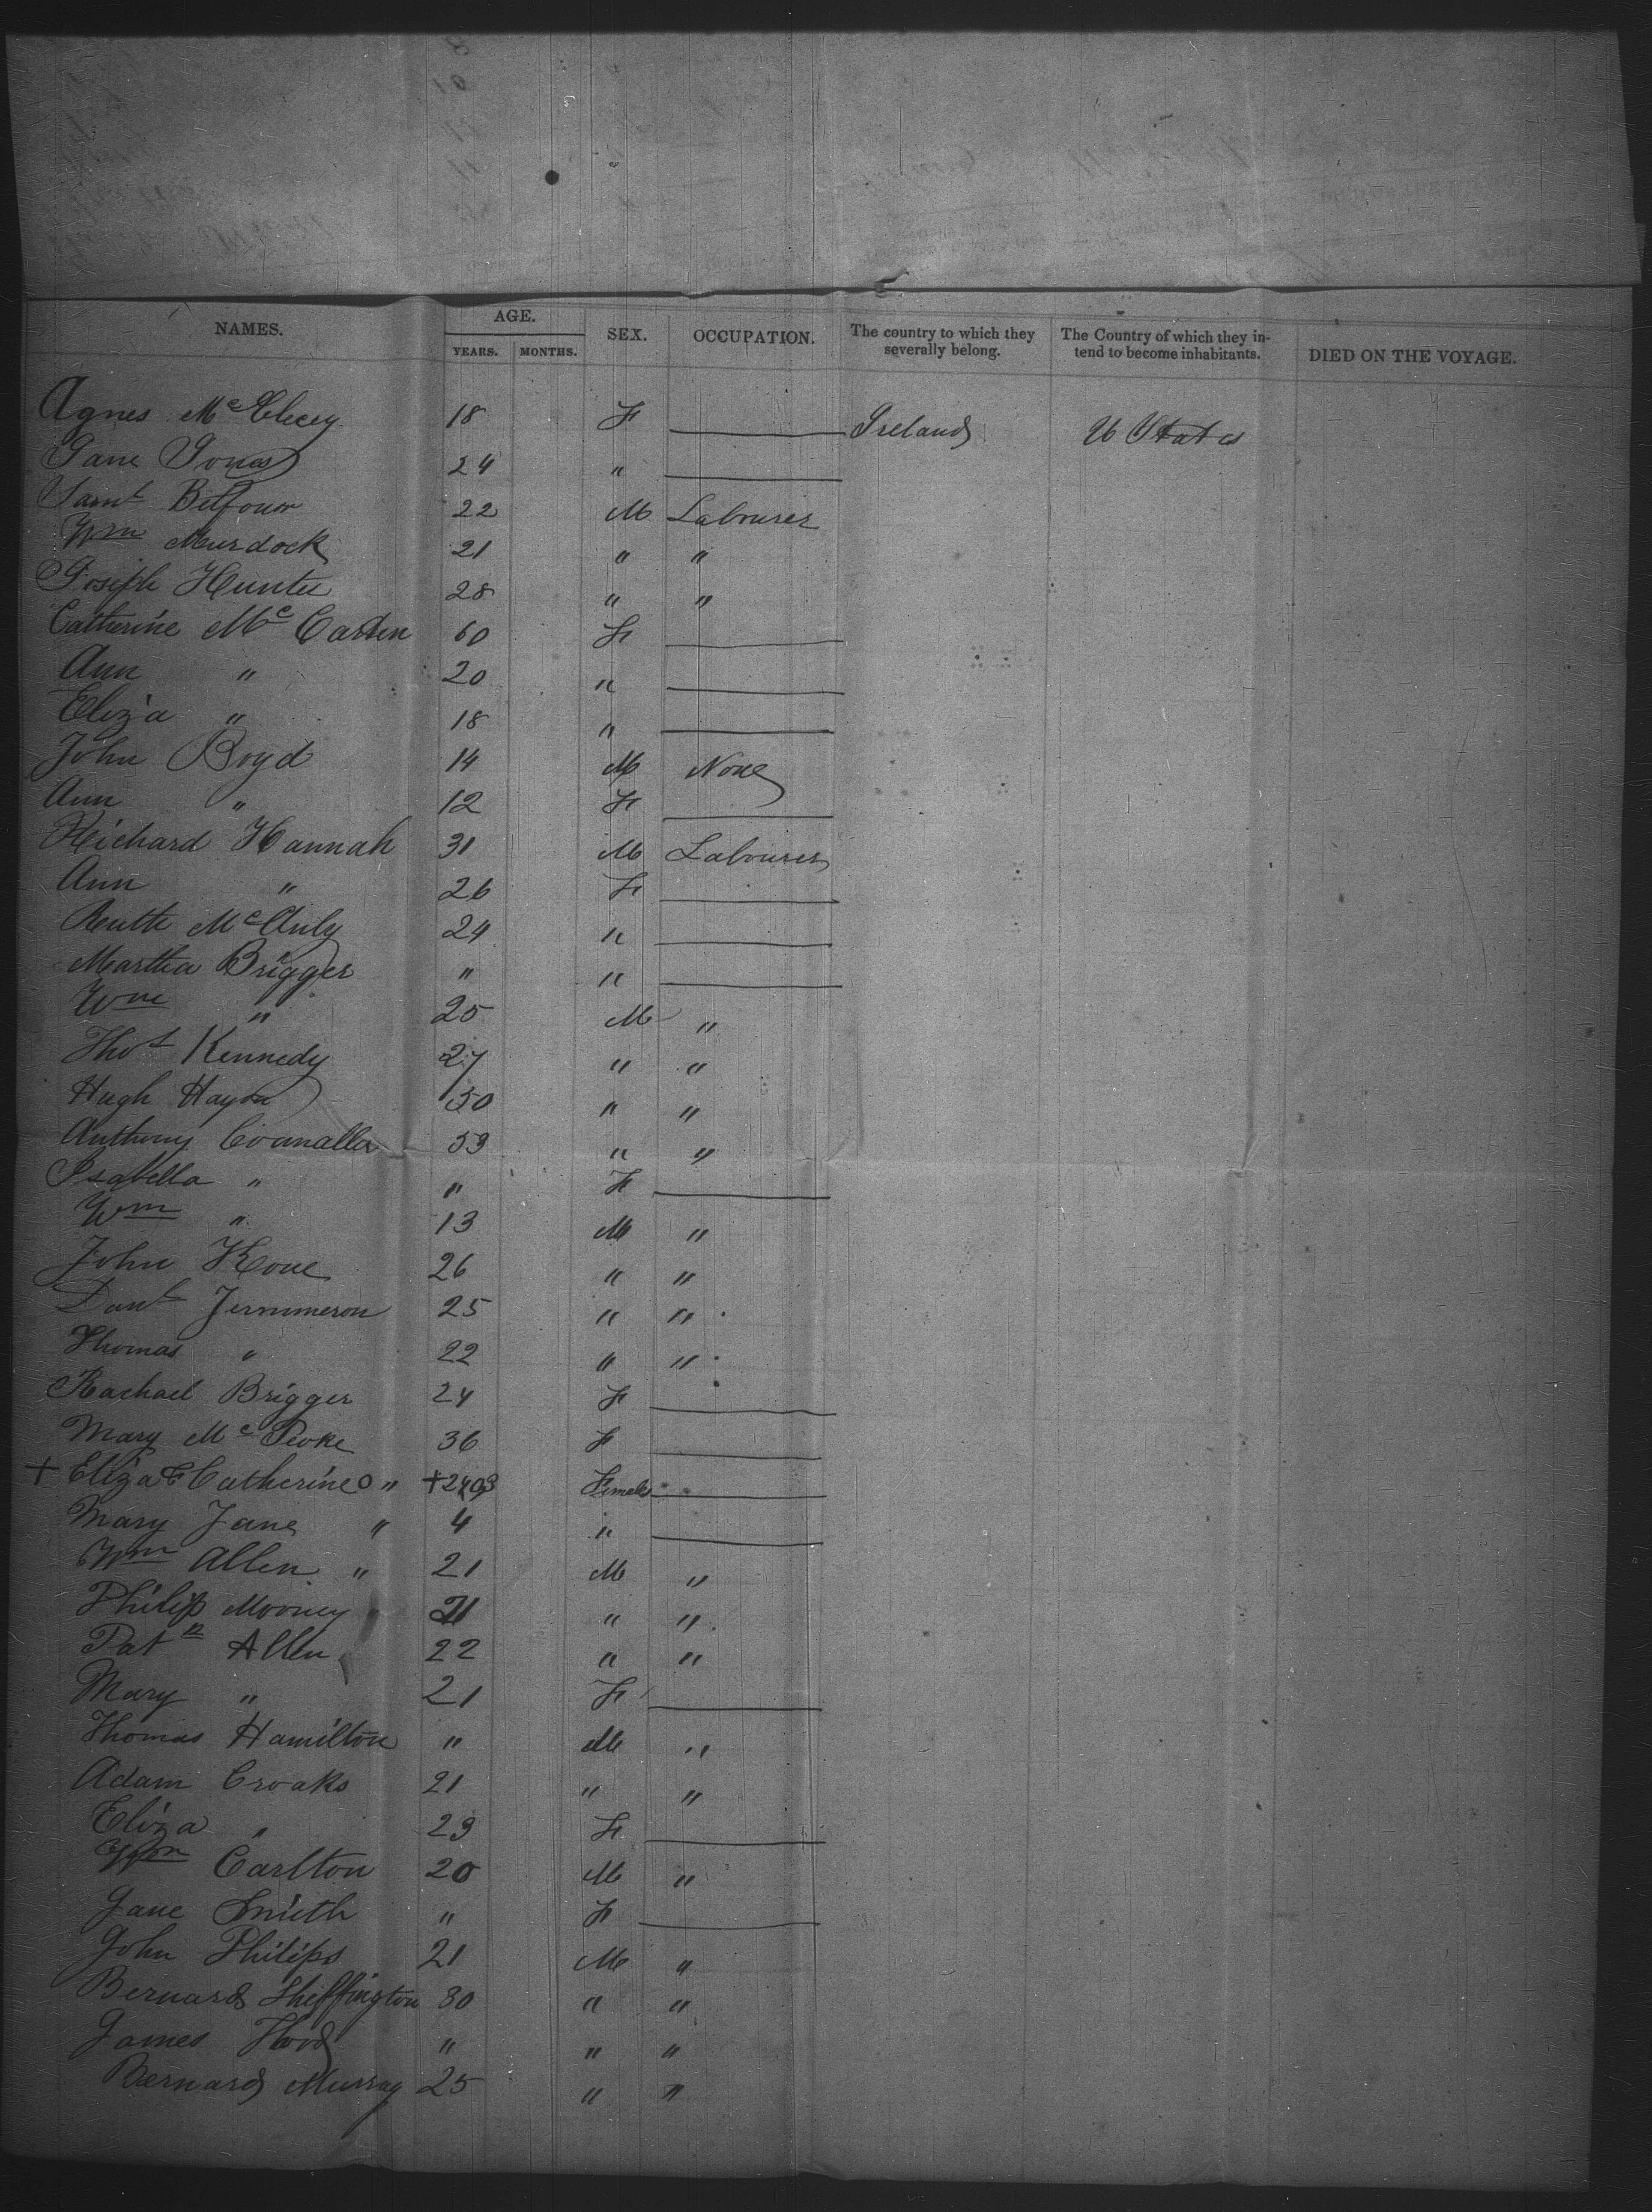 NAMES. AGE. YEARS. MONTHS. SEX. OCCUPATION. The country to which they severally belong. The Country of which they intend to become inhabitants. DIED ON THE VOYAGE.
Agnes Mc 18 F Ireland U States
Jane Jones 24 "
Saml Belfour 22 M Labourer
Wm Murdock 21 " "
Joseph Hunter 28 " "
Catherine Mc Carten 60 F
Ann " 20 "
Eliza " 18 "
John Boyd 14 M None
Ann " 12 F
Richard Hannah 31 M Labourer
Ann " 26 F
Ruth Mc Auly 24 "
Martha Brigger " "
Wm " 25 M "
Thos Kennedy 27 " "
Hugh " "
Anthony " "
Isabella " " F
Wm " 13 M "
John Kone 26 " "
Danl Jemmeron 25 " "
Thomas " 22 " "
Rachael Brigger 24 F
Mary Mc Peoke 36 F
+ Eliza & Catherine " Females
Mary Jane " 4 "
Wm Allen " 21 M "
Philip Mooney 21 " "
Pat Allen 22 " "
Mary " 21 F
Thomas Hamilton " M "
Adam Croaks 21 " "
Eliza " 23 F
Wm Carlton 20 M "
Jane Smith " F
John Philips 21 M "
Bernard Sheffington 30 " "
James Hood " " "
Bernard Murray 25 " "